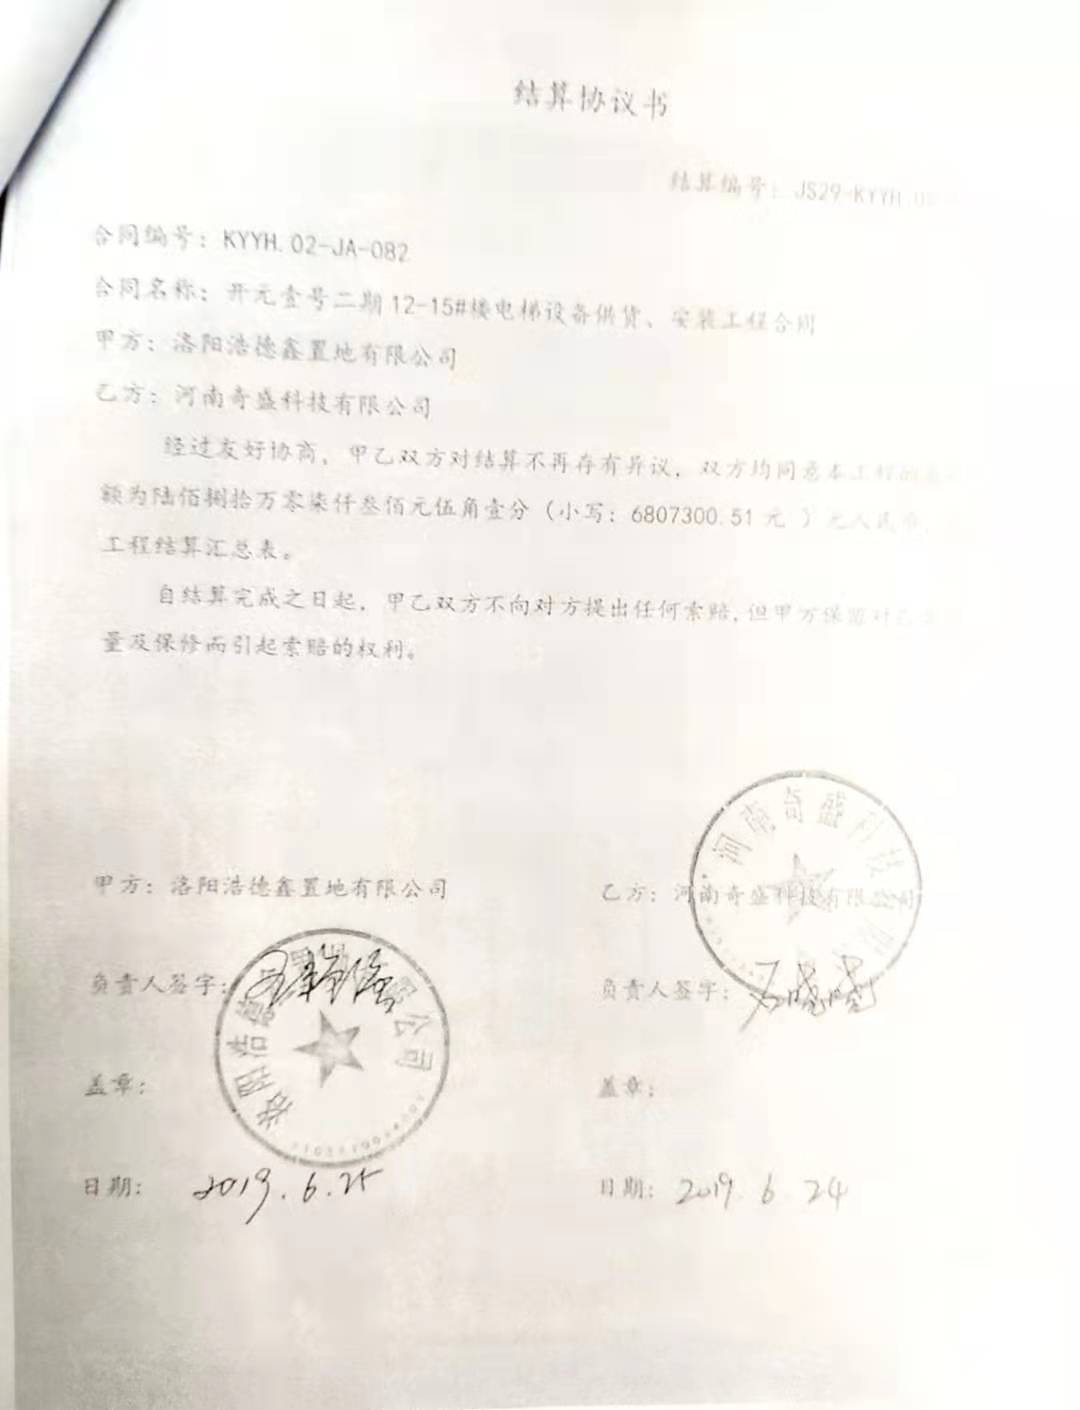 结算协议书
结算编号：JS29-KYYH.
合同编号：KYYH.02-JA-082
合同名称：开元壹号二期12-15#楼电梯设备供货、安装工程合同
甲方：洛阳浩德鑫置地有限公司
乙方：河南奇盛科技有限公司
经过友好协商，甲乙双方对结算不再存有异议，双方均同意本工程的
额为陆佰捌拾万零柒仟叁佰元伍角壹分（小写：6807300.51元 ）元人民币
工程结算汇总表。
自结算完成之日起，甲乙双方不向对方提出任何索赔,但甲方保留对乙
量及保修而引起索赔的权利。
河南奇盛科技
甲方：洛阳浩德鑫置地有限公司
乙方：河南奇盛科技有限公司
负责人签字：
负责人签字：
洛阳浩德 公司
盖章：
盖章：
日期： 2019.6.25
日期： 2019.6.24